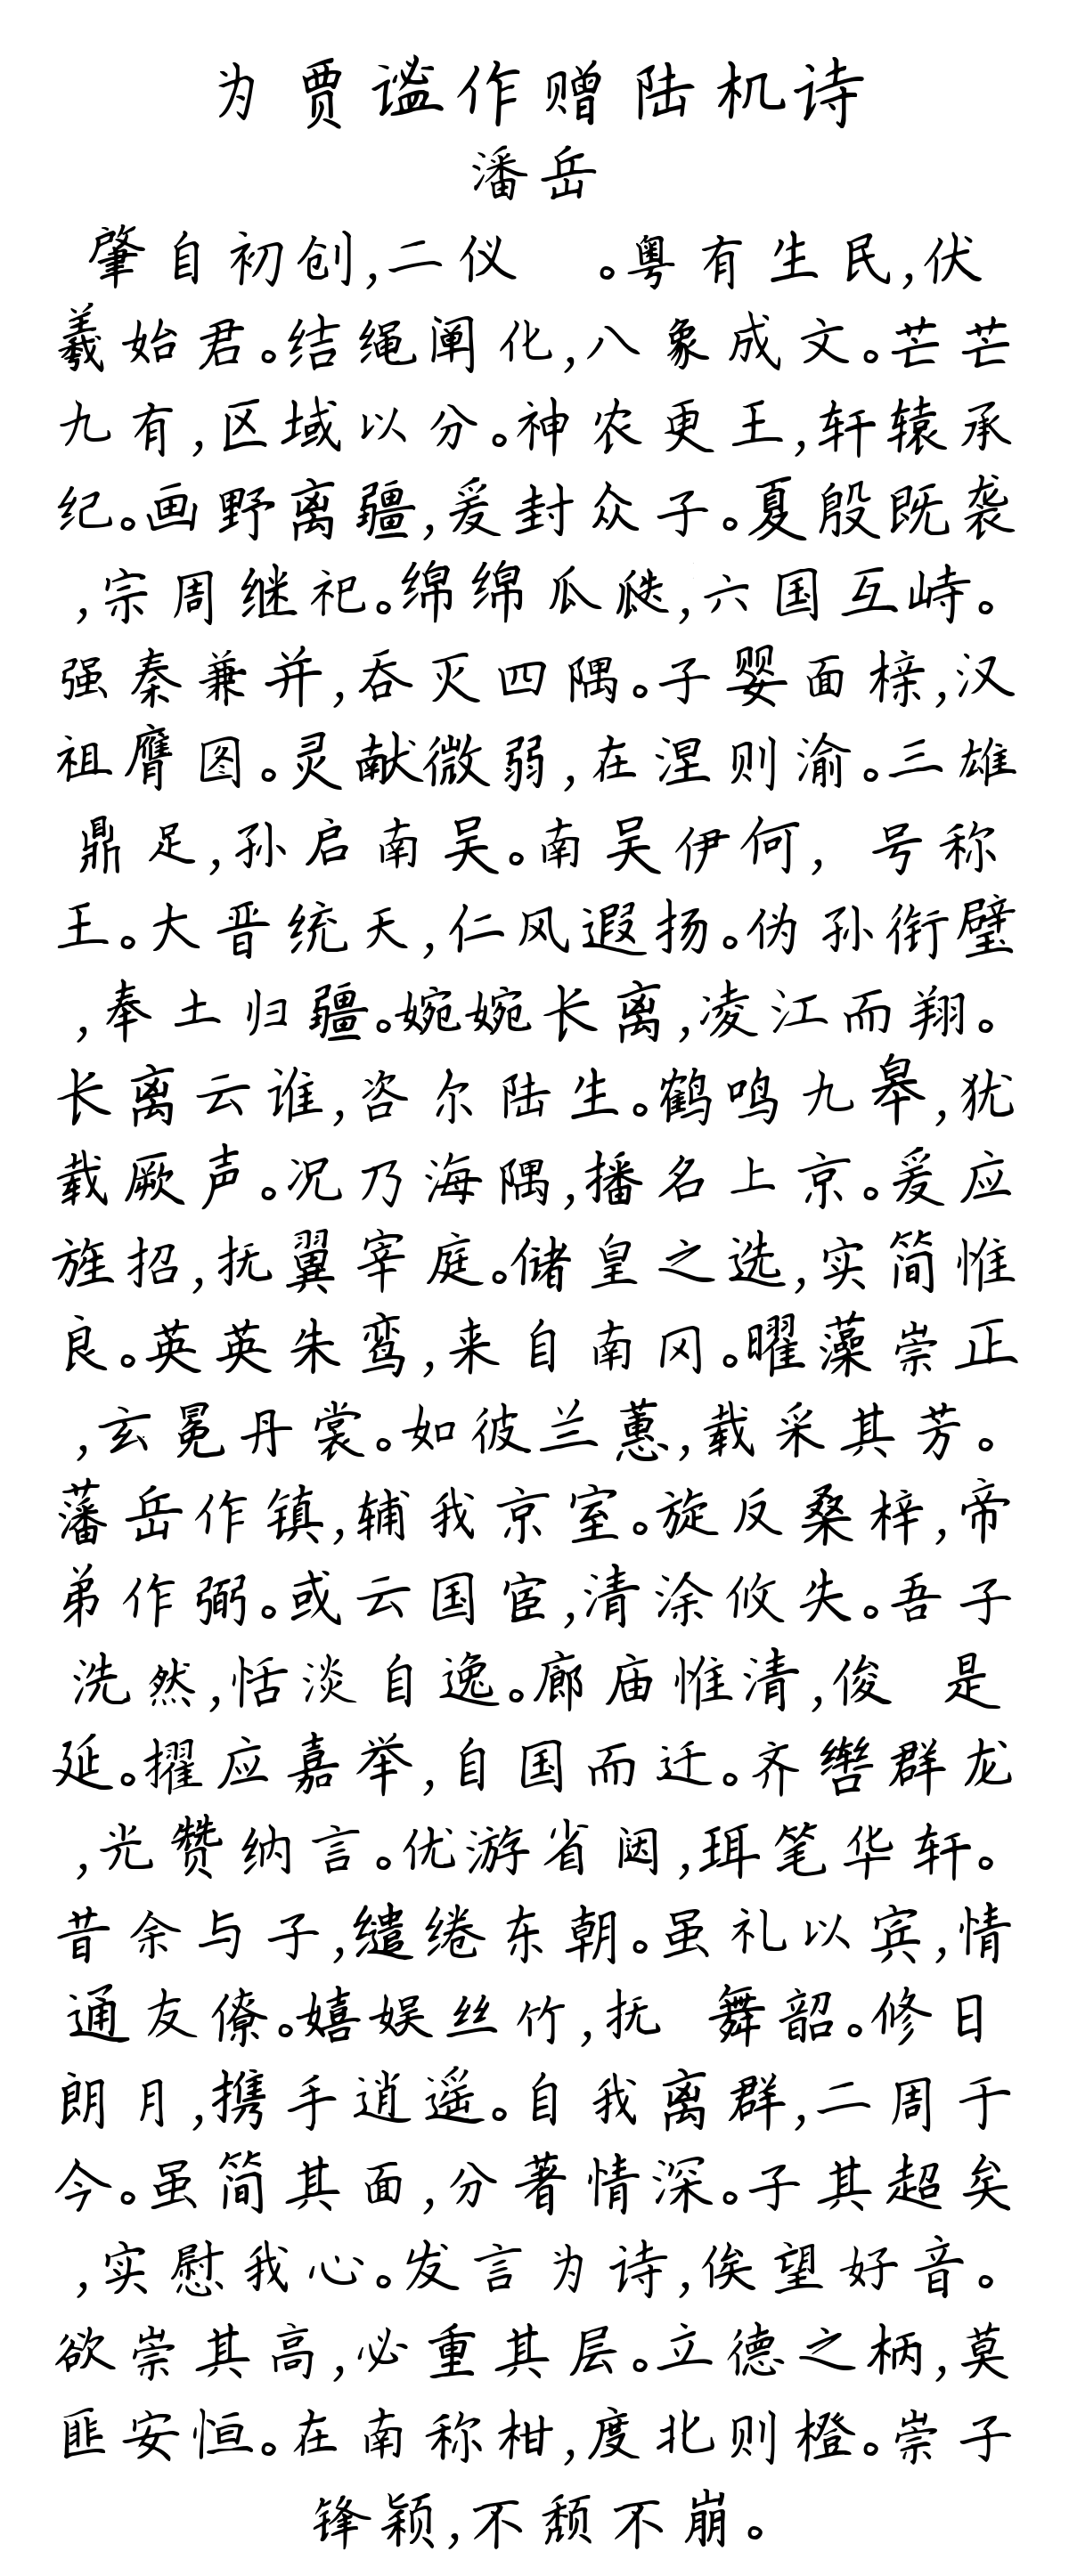 为贾谧作赠陆机诗
潘岳
肇自初创,二仪 。粤有生民,伏
羲始君。结绳阐化,八象成文。芒芒
九有,区域以分。神农更王,轩辕承
纪。画野离疆,爰封众子。夏殷既袭
,宗周继祀。绵绵瓜瓞,六国互峙。
强秦兼并,吞灭四隅。子婴面榇,汉
祖膺图。灵献微弱,在涅则渝。三雄
鼎足,孙启南吴。南吴伊何, 号称
王。大晋统天,仁风遐扬。伪孙衔璧
,奉土归疆。婉婉长离,凌江而翔。
长离云谁,咨尔陆生。鹤鸣九皋,犹
载厥声。况乃海隅,播名上京。爰应
旌招,抚翼宰庭。储皇之选,实简惟
良。英英朱鸾,来自南冈。曜藻崇正
,玄冕丹裳。如彼兰蕙,载采其芳。
藩岳作镇,辅我京室。旋反桑梓,帝
弟作弼。或云国宦,清涂攸失。吾子
洗然,恬淡自逸。廊庙惟清,俊 是
延。擢应嘉举,自国而迁。齐辔群龙
,光赞纳言。优游省闼,珥笔华轩。
昔余与子,缱绻东朝。虽礼以宾,情
通友僚。嬉娱丝竹,抚 舞韶。修日
朗月,携手逍遥。自我离群,二周于
今。虽简其面,分著情深。子其超矣
,实慰我心。发言为诗,俟望好音。
欲崇其高,必重其层。立德之柄,莫
匪安恒。在南称柑,度北则橙。崇子
锋颖,不颓不崩。